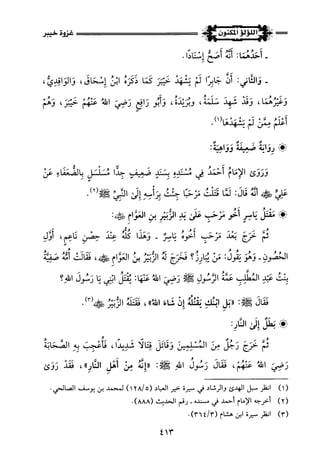 اللؤلؤ المكنون
غزوة خيبر
ـ أَحَدُهُمَا: أَنَّهُ أَصَحُّ إِسْنَادًا.
ـ وَالثَّانِي: أَنَّ جَابِرًا لَمْ يَشْهَدْ خَيْبَرَ كَمَا ذَكَرَهُ ابْنُ إِسْحَاقَ، وَالوَاقِدِيُّ،
وَغَيْرُهُمَا، وَقَدْ شَهِدَ سَلَمَةُ، وبُرَيْدَةُ، وَأَبُو رَافِعٍ رَضِيَ اللهُ عَنْهُمْ خَيْبَرَ، وَهُمْ
أَعْلَمُ مِمَّنْ لَمْ يَشْهَدْهَا(١).
* رِوَايَةٌ ضَعِيفَةٌ وَوَاهِيَةٌ:
وَرَوَى الإِمَامُ أَحْمَدُ فِي مُسْنَدِهِ بِسَنَدٍ ضَعِيفٍ جِدًّا مُسَلْسَلٍ بِالضُّعَفَاءِ عَنْ
عَلِيٍّ ﷺ أَنَّهُ قَالَ: لَمَّا قَتَلْتُ مَرْحَبًا جِئْتُ بِرَأْسِهِ إِلَى النَّبِيِّ ﷺ(٢).
* مَقْتَلُ يَاسِرٍ أَخُو مَرْحَبٍ عَلَى يَدِ الزُّبَيْرِ بنِ العَوَّامِ ﷺ:
ثُمَّ خَرَجَ بَعْدَ مَرْحَبٍ أَخُوهُ يَاسِرٌ ـ وَهَذَا كُلُّهُ عِنْدَ حِصْنِ نَاعِمٍ، أَوَّلِ
الحُصُونِ ـ وَهُوَ يَقُولُ: مَنْ يُبَارِزُ؟ فَخَرَجَ لَهُ الزُّبَيْرُ بنُ العَوَّامِ ﷺ، فَقَالَتْ أُمُّهُ صَفِيَّةُ
بِنْتُ عَبْدِ المُطَّلِبِ عَمَّةُ الرَّسُولِ ﷺ رَضِيَ اللهُ عَنْهَا: يُقْتَلُ ابْنِي يَا رَسُولَ اللهِ؟
فَقَالَ ﷺ: «بَلِ ابْنُكِ يَقْتُلُهُ إِنْ شَاءَ اللهُ»، فَقَتَلَهُ الزُّبَيْرُ ﷺ(٣).
* بَطَلٌ إِلَى النَّارِ:
ثُمَّ خَرَجَ رَجُلٌ مِنَ المُسْلِمِينَ وَقَاتَلَ قِتَالًا شَدِيدًا، فَأُعْجِبَ بِهِ الصَّحَابَةُ
رَضِيَ اللهُ عَنْهُمْ، فَقَالَ رَسُولُ اللهِ ﷺ: «إِنَّهُ مِنْ أَهْلِ النَّارِ»، فَقَدْ رَوَى
(١) انظر سبل الهدى والرشاد في سيرة خير العباد (١٢٨/٥) لمحمد بن يوسف الصالحي.
(٢) أخرجه الإمام أحمد في مسنده ـ رقم الحديث (٨٨٨).
(٣) انظر سيرة ابن هشام (٣٦٤/٣)
٤١٣